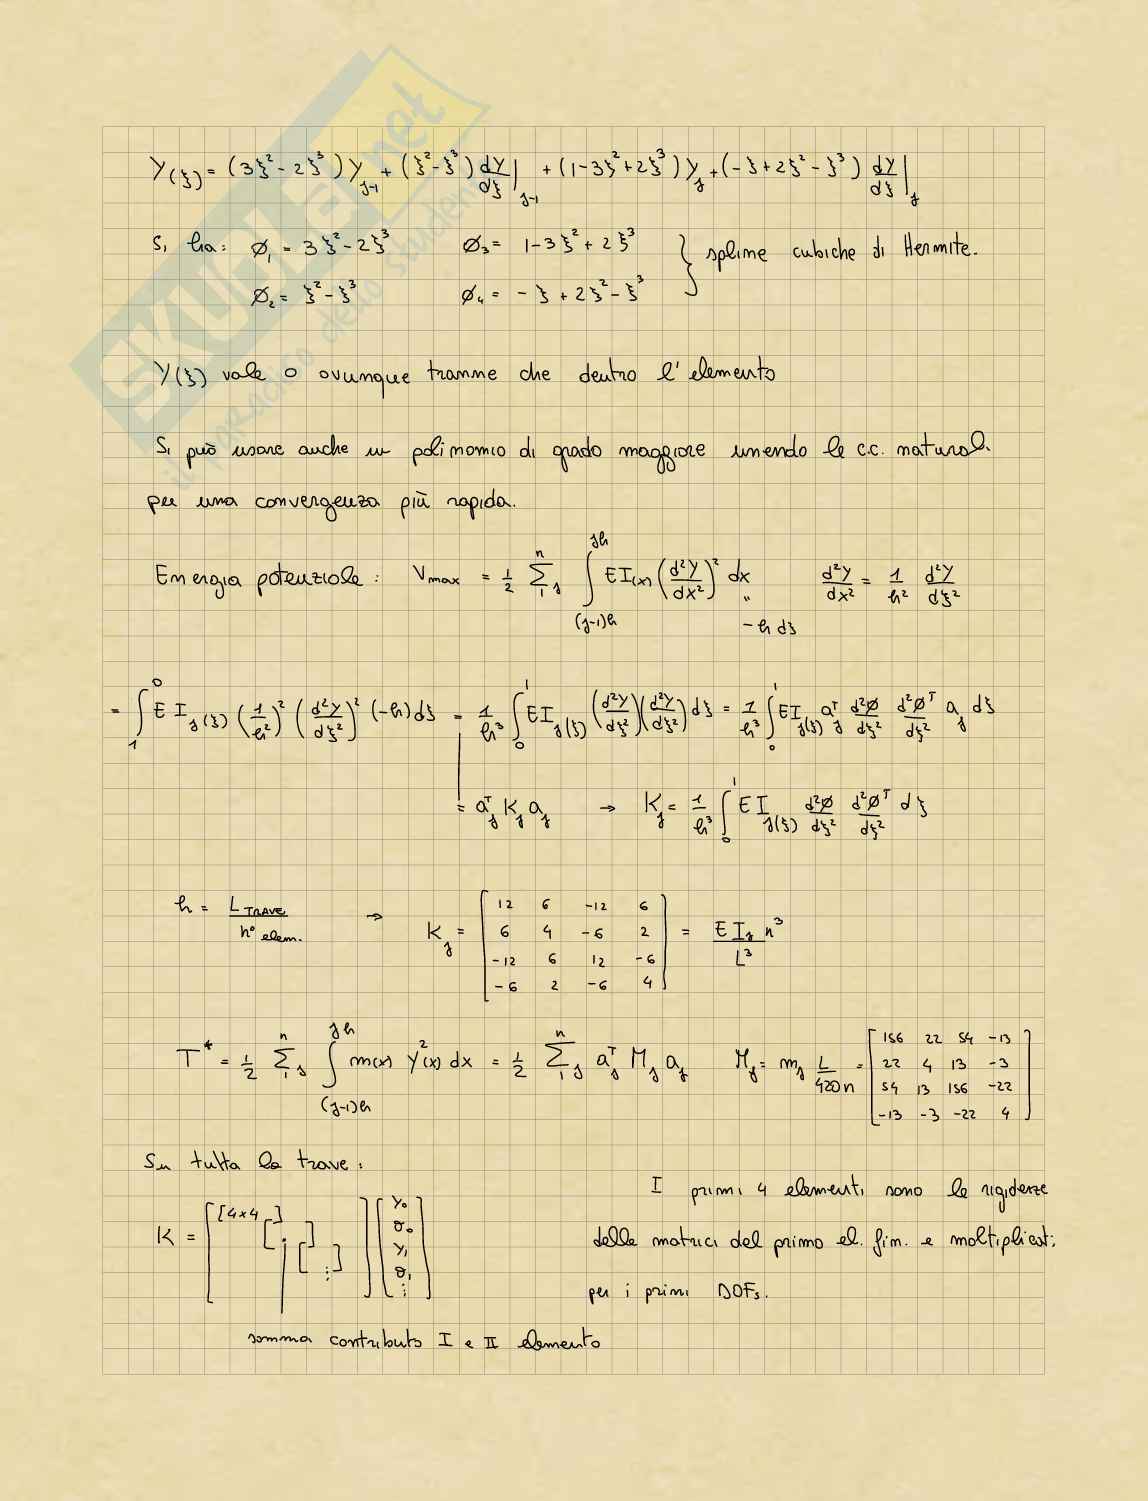 SKUOLA.net
il paradiso dello studente
Y(ξ) = (3ξ² - 2ξ³) Y_{j-1} + (ξ² - ξ³) dY/dξ|_{j-1} + (1 - 3ξ² + 2ξ³) Y_j + (-ξ + 2ξ² - ξ³) dY/dξ|_j
Si ha: ∅₁ = 3ξ² - 2ξ³ ∅₃ = 1 - 3ξ² + 2ξ³ } spline cubiche di Hermite.
∅₂ = ξ² - ξ³ ∅₄ = - ξ + 2ξ² - ξ³
Y(ξ) vale 0 ovunque tranne che dentro l'elemento
Si può usare anche un polinomio di grado maggiore unendo le c.c. naturali
per una convergenza più rapida.
Energia potenziale: V_max = 1/2 Σ_{1}^{n}_j ∫_{(j-1)h}^{jh} EI(x) (d²Y/dx²)² dx d²Y/dx² = 1/h² d²Y/dξ²
" - h dξ
= ∫_1^0 E I_j(ξ) (1/h²)² (d²Y/dξ²)² (-h) dξ = 1/h³ ∫_0^1 EI_j(ξ) (d²Y/dξ²)(d²Y/dξ²) dξ = 1/h³ ∫_0^1 EI_j(ξ) a_j^T d²∅/dξ² d²∅^T/dξ² a_j dξ
= a_j^T K_j a_j → K_j = 1/h³ ∫_0^1 E I_j(ξ) d²∅/dξ² d²∅^T/dξ² dξ
h = L_TRAVE / n° elem. → K_j = [12 6 -12 6
6 4 -6 2
-12 6 12 -6
-6 2 -6 4] = E I_j n³ / L³
T* = 1/2 Σ_{1}^{n}_j ∫_{(j-1)h}^{jh} m(x) Y²(x) dx = 1/2 Σ_{1}^{n}_j a_j^T M_j a_j M_j = m_j L/420n = [156 22 54 -13
22 4 13 -3
54 13 156 -22
-13 -3 -22 4]
Su tutta la trave:
K = [[4x4] [ ] [ ] ⋮] [Y₀ σ₀ Y₁ σ₁ ⋮]
somma contributo I e II elemento
I primi 4 elementi sono le rigidezze
delle matrici del primo el. fin. e moltiplicati
per i primi DOFs.